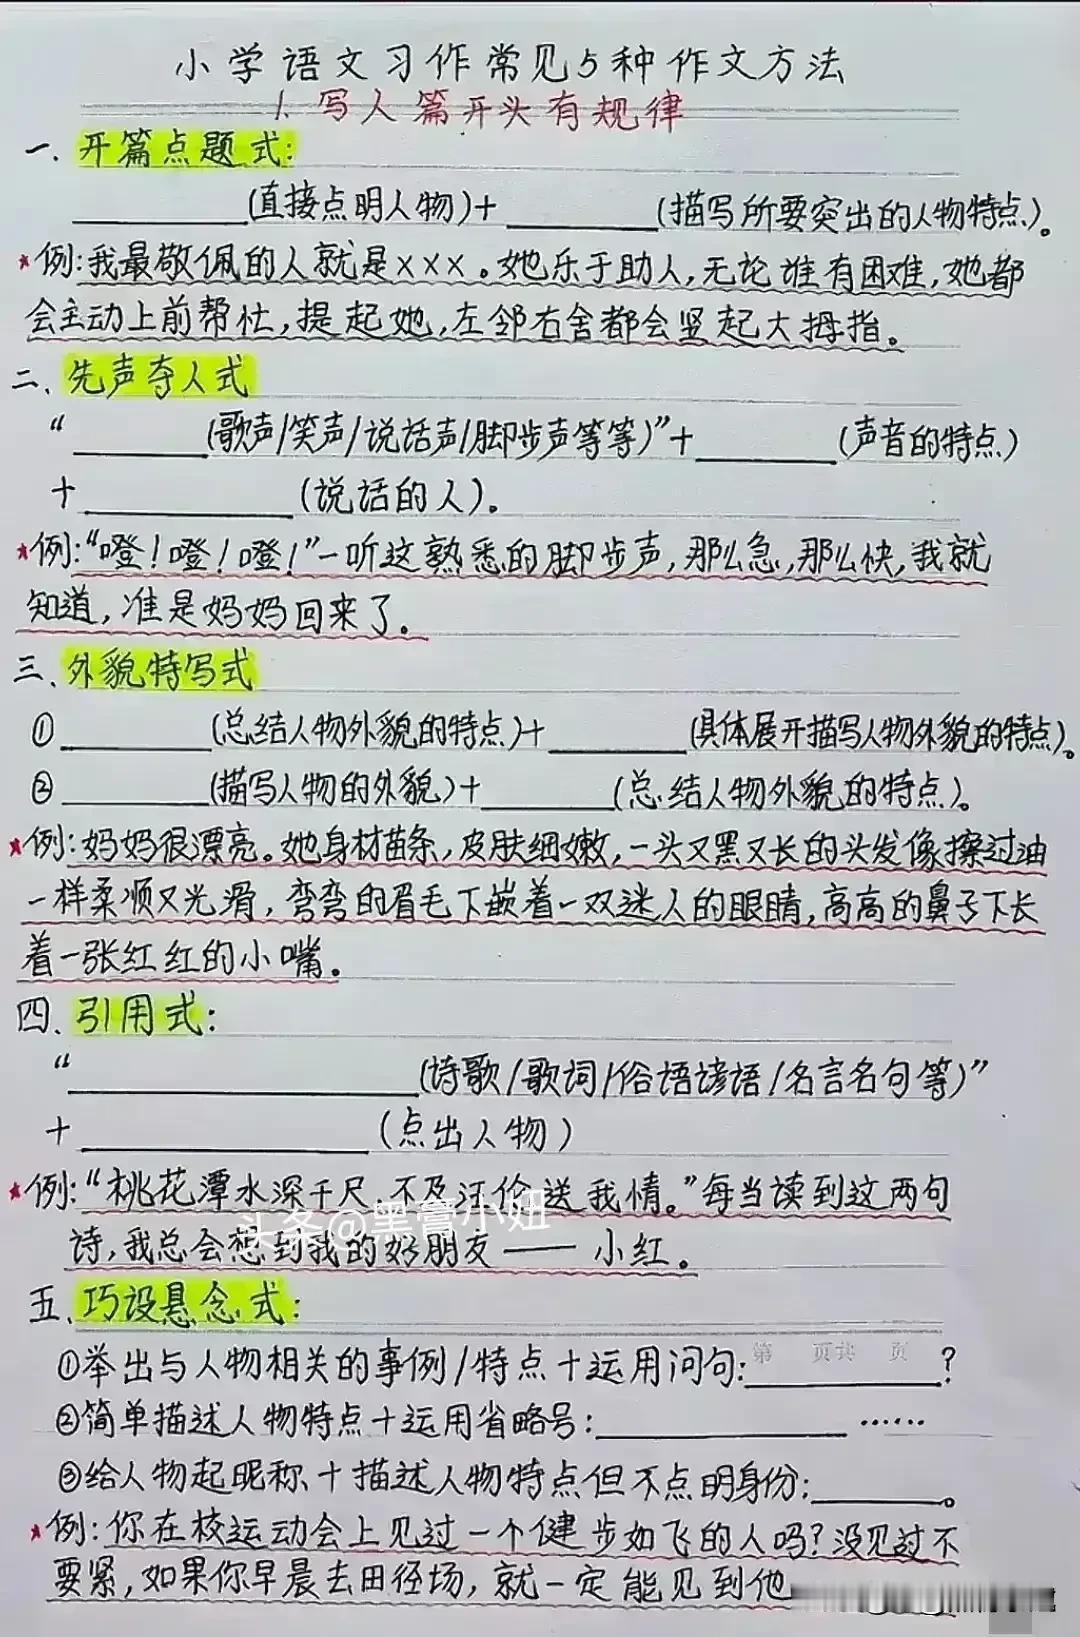 小学语文习作常见5种作文方法
1. 写人篇开头有规律
一. 开篇点题式:
(直接点明人物)+ (描写所要突出的人物特点)。
★例:我最敬佩的人就是×××。她乐于助人,无论谁有困难,她都
会主动上前帮忙,提起她,左邻右舍都会竖起大拇指。
二、先声夺人式
“ (歌声/笑声/说话声/脚步声等等)”+ (声音的特点)
+ (说话的人)。
★例:“噔!噔!噔!”一听这熟悉的脚步声,那么急,那么快,我就
知道,准是妈妈回来了.
三、外貌特写式
① (总结人物外貌的特点)+ (具体展开描写人物外貌的特点)。
② (描写人物的外貌)+ (总结人物外貌的特点)。
★例:妈妈很漂亮。她身材苗条,皮肤细嫩,一头又黑又长的头发像擦过油
一样柔顺又光滑,弯弯的眉毛下嵌着一双迷人的眼睛,高高的鼻子下长
着一张红红的小嘴.
四. 引用式:
“ (诗歌/歌词/俗语谚语/名言名句等)”
+ (点出人物)
★例:“桃花潭水深千尺,不及汪伦送我情。”每当读到这两句
头条@黑营小妞
诗,我总会想到我的好朋友——小红。
五. 巧设悬念式:
第 页共 页
①举出与人物相关的事例/特点+运用问句: ?
②简单描述人物特点+运用省略号: ……
③给人物起昵称+描述人物特点但不点明身份: 。
★例:你在校运动会上见过一个健步如飞的人吗?没见过不
要紧,如果你早晨去田径场,就一定能见到他